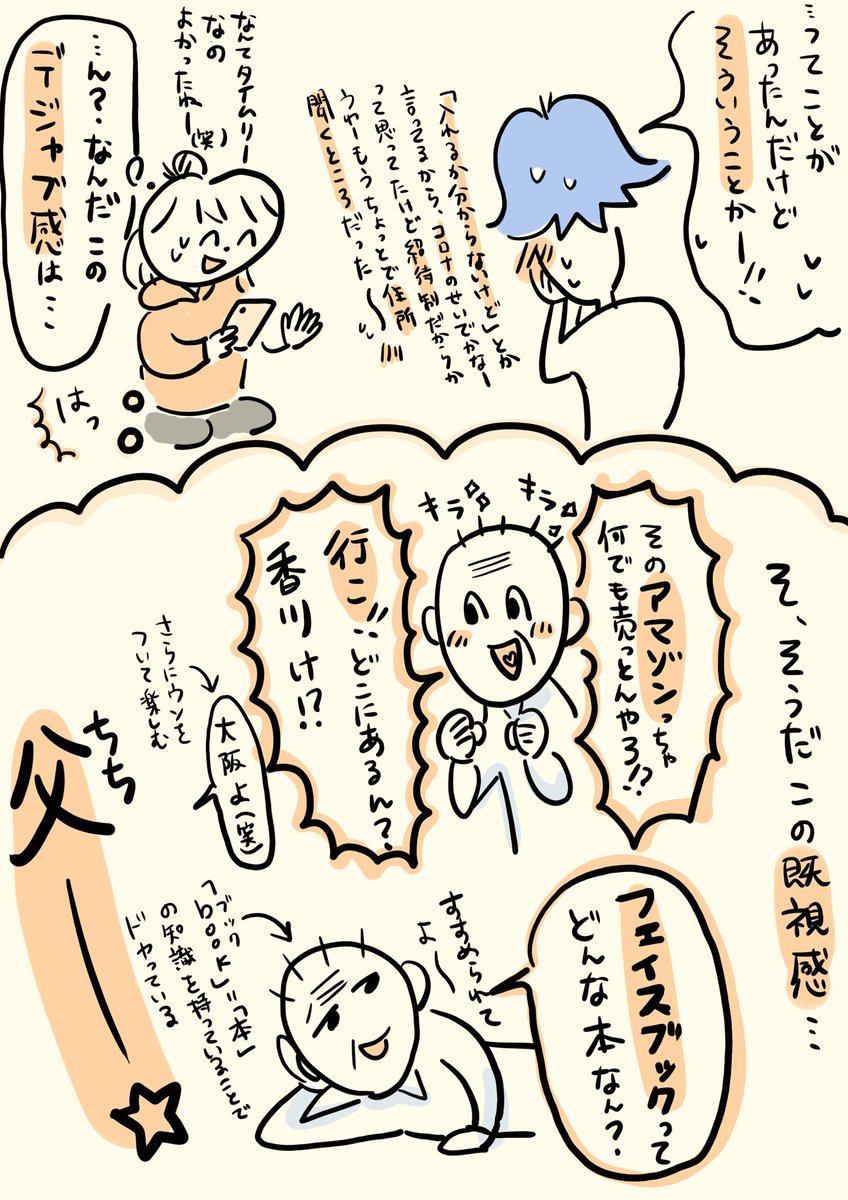 …ってことが
あったんだけど
そういうことかー!!
「入れるか分からないけど」とか
言ってるから、コロナのせいでかなー
って思ってたけど紹待制だからか
うわーもうちょっとで住所
聞くところだった〜
なんてタイムリー
なの
よかったねー(笑)
…ん?なんだこの
デジャブ感は…
はっ
そ、そうだこの既視感…
そのアマゾンっちゃ
何でも売っとんやろ!?
キラ
キラ
行こ!!どこにあるん?
香川け!?
大阪よ(笑)
さらにウソを
ついて楽しむ
フェイスブックって
どんな本なん?
すすめられて
よ〜
「ブック
book」=「本」
の知識を持っていることで
ドヤっている
ちち
父ー☆